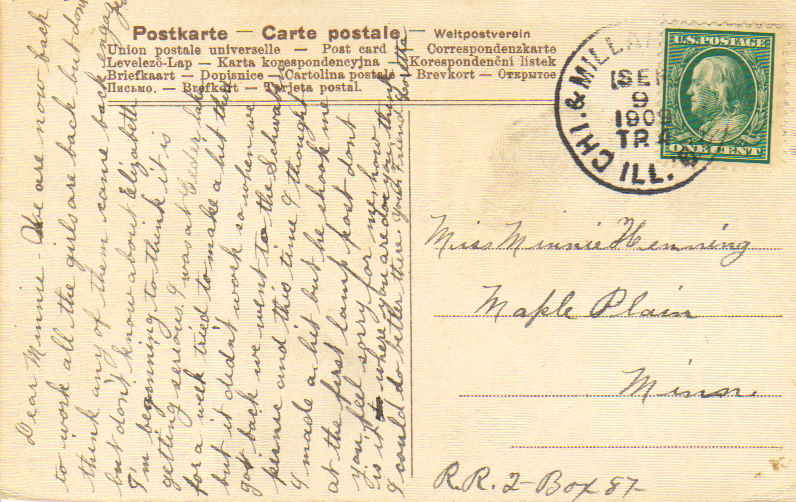 Postkarte — Carte postale — Weltpostverein
Union postale universelle — Post card — Correspondenzkarte
Levelező-Lap — Karta korespondencyjna — Korespondenční lístek
Briefkaart — Dopisnice — Cartolina postale — Brevkort — Открытое
Письмо. — Brefkort — Tarjeta postal.
CHI. & MILLA
SEP
9
1909
TR 4
ILL.
U.S. POSTAGE
ONE CENT
Miss Minnie Henning
Maple Plain
Minn.
R.R. 2 - Box 87-
Dear Minnie - We are now back
to work all the girls are back but don't
think any of them came back engaged
but don't know about Elizabeth
I'm beginning to think it is
getting serious. I was at Ceder Lake
for a week tried to make a hit there
but it didn't work so when we
got back we went to the Schwab
picnic and this time I thought
I made a hit but he shook me
at the first lamp post dont
you feel sorry for me, how
is it where you are do you think
I could do better there Your Friend Loretta